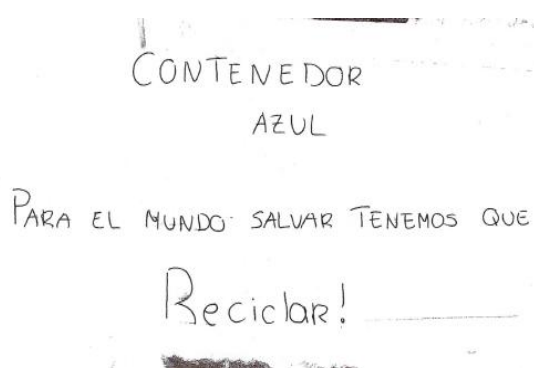 CONTENEDOR
AZUL
PARA EL MUNDO SALVAR TENEMOS QUE
Reciclar!